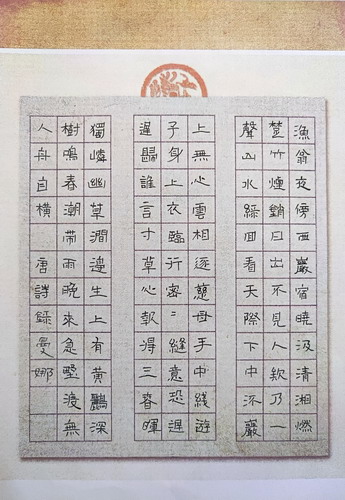 漁翁夜傍西巖宿曉汲清湘燃
楚竹煙銷日出不見人欸乃一
聲山水綠回看天際下中流巖
上無心雲相逐慈母手中綫遊
子身上衣臨行密〻縫意恐遲
遲歸誰言寸草心報得三春暉
獨憐幽草澗邊生上有黃鸝深
樹鳴春潮帶雨晚來急野渡無
人舟自橫 唐詩錄曼娜